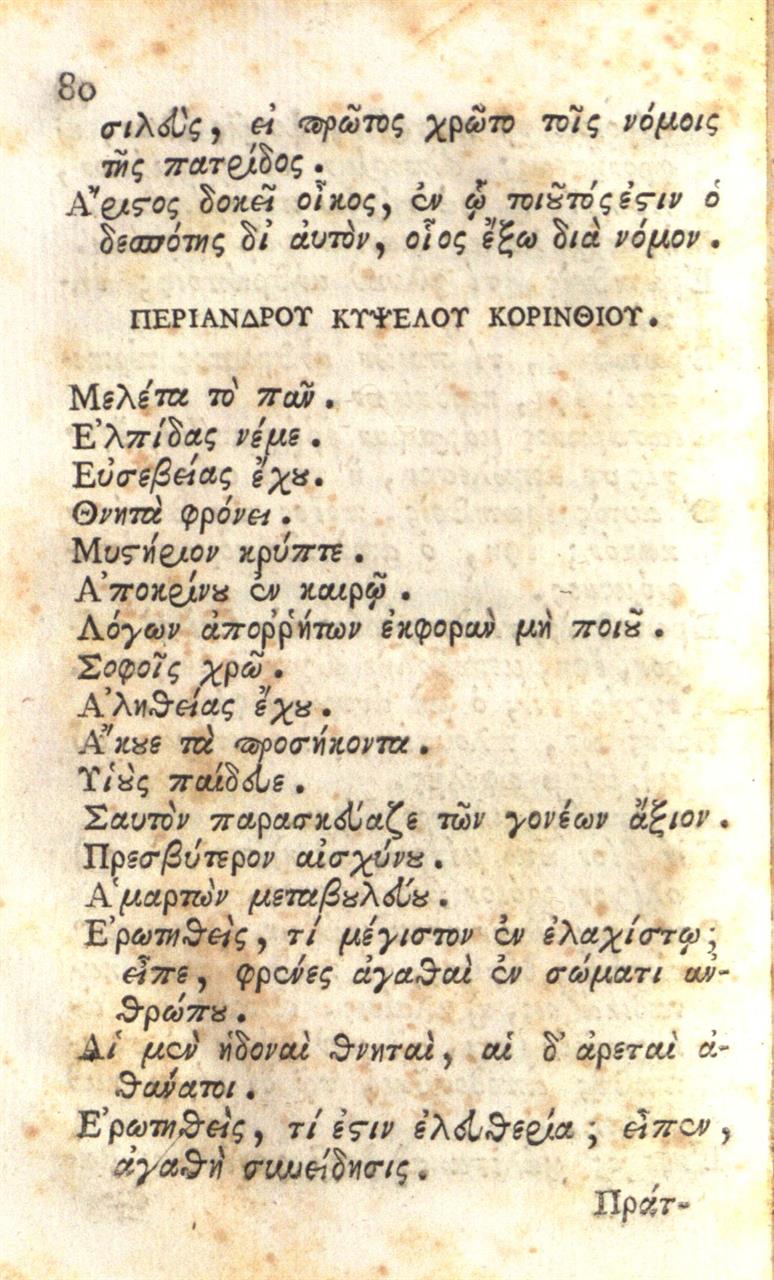 80
σιλεὺς, εἰ πρῶτος χρῶτο τοῖς νόμοις
τῆς πατρίδος.
Ἄριστος δοκεῖ οἶκος, ἐν ᾧ τοιοῦτός ἐστιν ὁ
δεσπότης δἰ αὐτὸν, οἷος ἔξω διὰ νόμον.
ΠΕΡΙΑΝΔΡΟΥ ΚΥΨΕΛΟΥ ΚΟΡΙΝΘΙΟΥ.
Μελέτα τὸ πᾶν.
Ἐλπίδας νέμε.
Εὐσεβείας ἔχου.
Θνητὰ φρόνει.
Μυστήριον κρύπτε.
Ἀποκρίνου ἐν καιρῷ.
Λόγων ἀποῤῥήτων ἐκφορὰν μὴ ποιοῦ.
Σοφοῖς χρῶ.
Ἀληθείας ἔχου.
Ἄκουε τὰ προσήκοντα.
Υἱοὺς παίδευε.
Σαυτὸν παρασκεύαζε τῶν γονέων ἄξιον.
Πρεσβύτερον αἰσχύνου.
Ἁμαρτὼν μεταβουλεύου.
Ἐρωτηθεὶς, τί μέγιστον ἐν ἐλαχίστῳ;
εἶπε, φρένες ἀγαθαὶ ἐν σώματι ἀν-
θρώπου.
Αἱ μὲν ἡδοναὶ θνηταὶ, αἱ δ' ἀρεταὶ ἀ-
θάνατοι.
Ἐρωτηθεὶς, τί ἐστιν ἐλευθερία; εἶπεν,
ἀγαθὴ συνείδησις.
Πράτ-